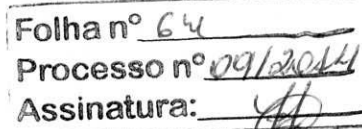 Folha nº 64
Processo nº 09/2014
Assinatura: